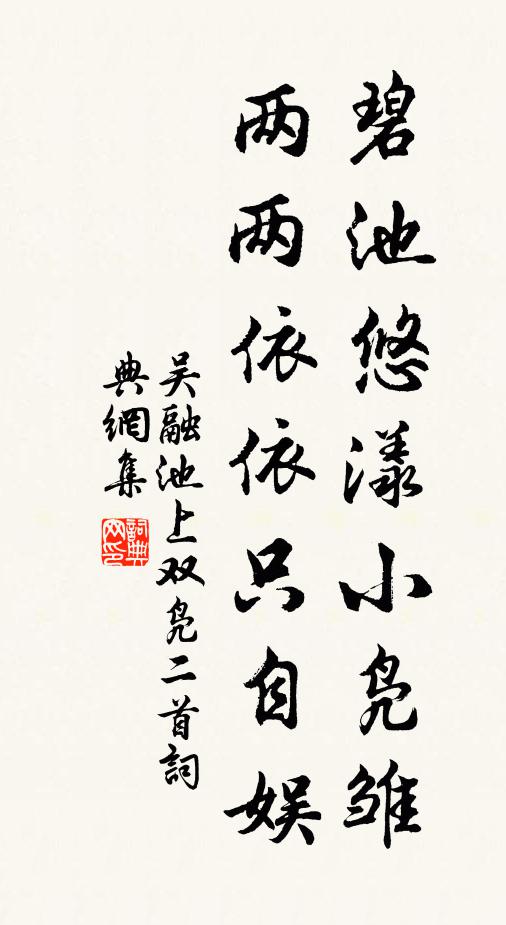 碧池悠漾小凫雏
两两依依只自娱
吴融池上双凫二首詞
典網集
詞典网印